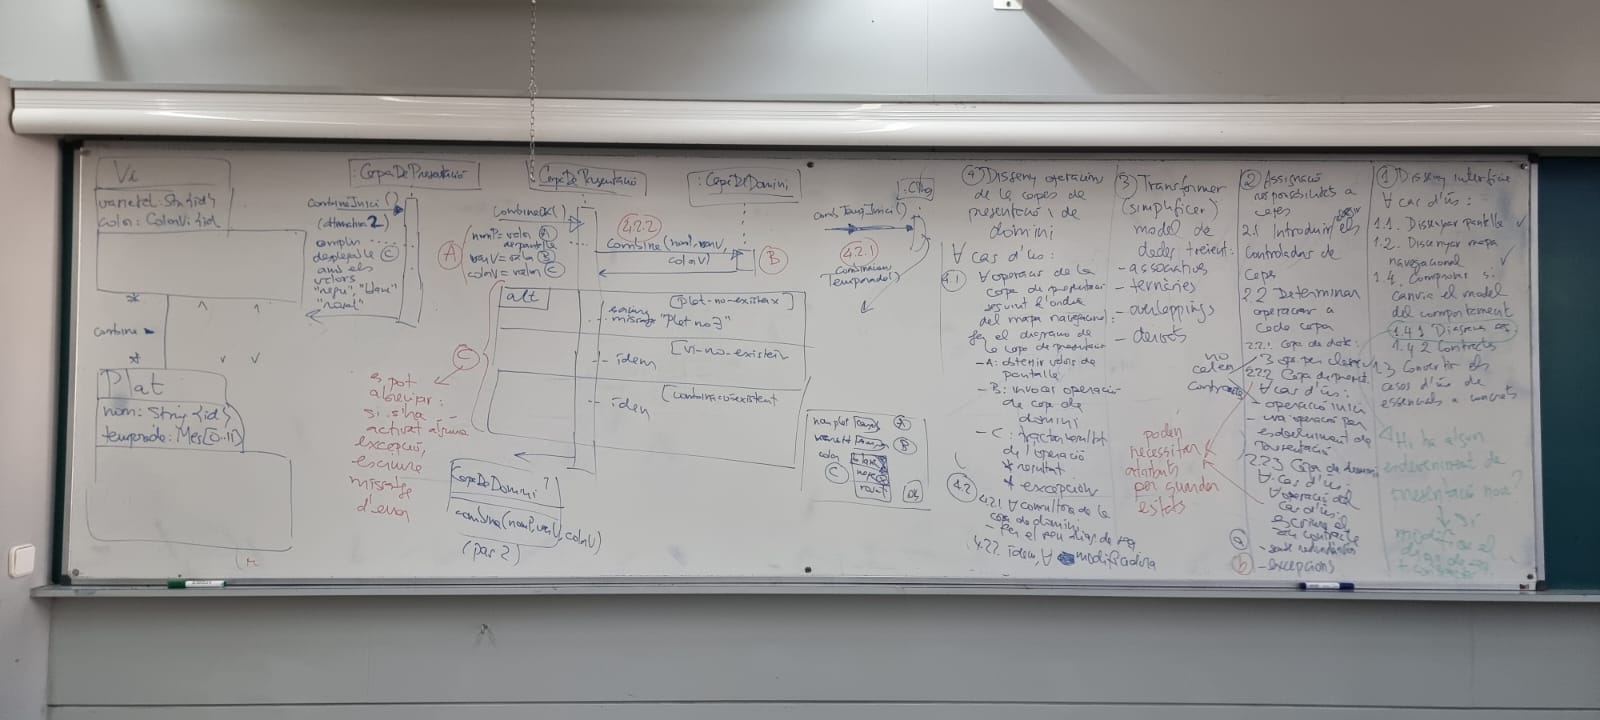 Vi
varietat: String {id}
color: ColorVi {id}
*
combina
*
Plat
nom: String {id}
temporada: Mes [0..11]
:CapaDePresentació
combinaInici()
(alternativa 2)
desplegable C
amb els
valors
"negre", "blanc"
"rosat"
:CapaDePresentació
:CapaDeDomini
combinaOk()
A
nomP = valor A
de pantalla
varV = valor B
colorV = valor C
4.2.2
combina (nomP, varV,
colorV)
B
C
alt
[plat-no-existeix]
missatge "Plat no ∃"
[vi-no-existeix]
idem
idem
es pot
abreujar:
si s'ha
activat alguna
excepció,
escriure
missatge
d'error
CapaDeDomini
combina(nomP, varV, colorV)
(pas 2)
:CtLog
4.2.1
A
B
color
C
Ok
④ Disseny operacions
de la capes de
presentació i de
domini
∀ cas d'ús:
4.1
∀ operació de la
capa de presentació
seguint l'ordre
del mapa navegacional:
fer el diagrama de
la capa de presentació
- A: obtenir valors de
pantalla
- B: invocar operació
de capa de
domini
- C: tractament
de l'operació
* resultat
* excepcions
4.2
4.2.1 ∀ consultora de la
capa de domini
4.2.2 idem, ∀ modificadora
③ Transformar
(simplificar)
model de
dades traient:
- associatives
- ternàries
- overlappings
- derivats
no
calen
contractes
poden
necessitar
atributs
per guardar
estats
② Assignació
responsabilitats a
capes
2.1 Introduir els
Controladors de
Capa
2.2 Determinar
operacions a
cada capa
2.2.1. Capa de dades:
2.2.2 Capa de present.
∀ cas d'ús:
- operació inici
- una operació per
esdeveniment de
presentació
2.2.3 Capa de domini
∀ cas d'ús:
∀ operació del
cas d'ús:
escriure el
seu contracte
a
b
- excepcions
① Disseny interfície
∀ cas d'ús:
1.1. Dissenyar pantalla ✓
1.2. Dissenyar mapa
navegacional ✓
1.4. Comprovar si
canvia el model
del comportament
1.4.1 Diagrama
1.4.2 Contractes
1.3 Convertir els
casos d'ús de
essencials a concrets
Hi ha algun
esdeveniment de
presentació nou?
↓ Sí